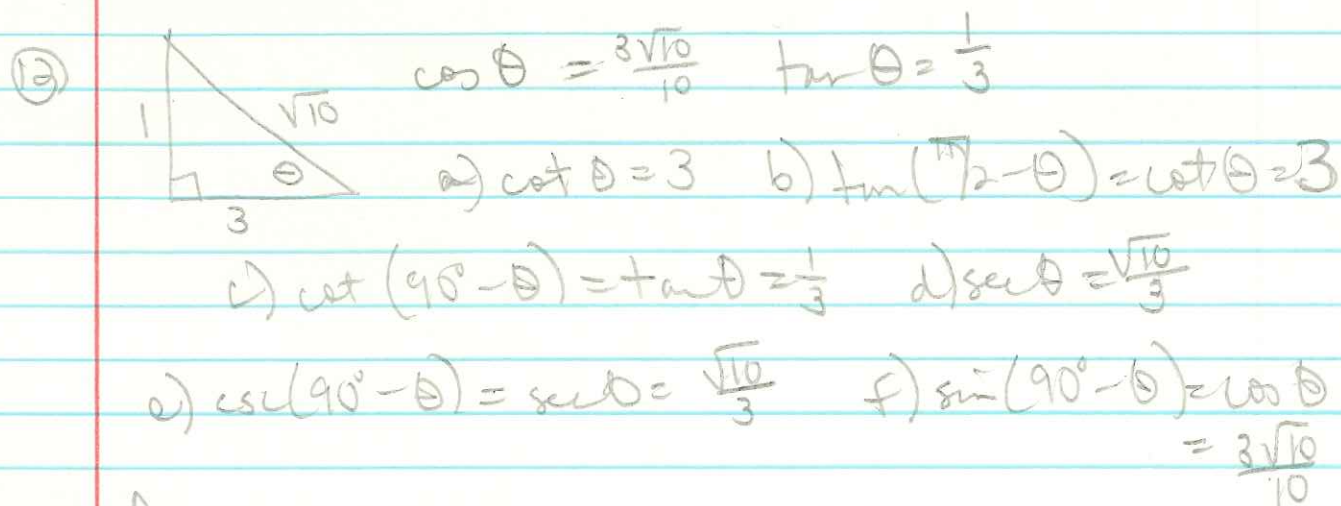 12 cos θ = 3√10/10 tan θ = 1/3
1 √10 θ 3
a) cot θ = 3 b) tan(π/2 - θ) = cot θ = 3
c) cot (90° - θ) = tan θ = 1/3 d) sec θ = √10/3
e) csc(90° - θ) = sec θ = √10/3 f) sin(90° - θ) = cos θ
= 3√10/10